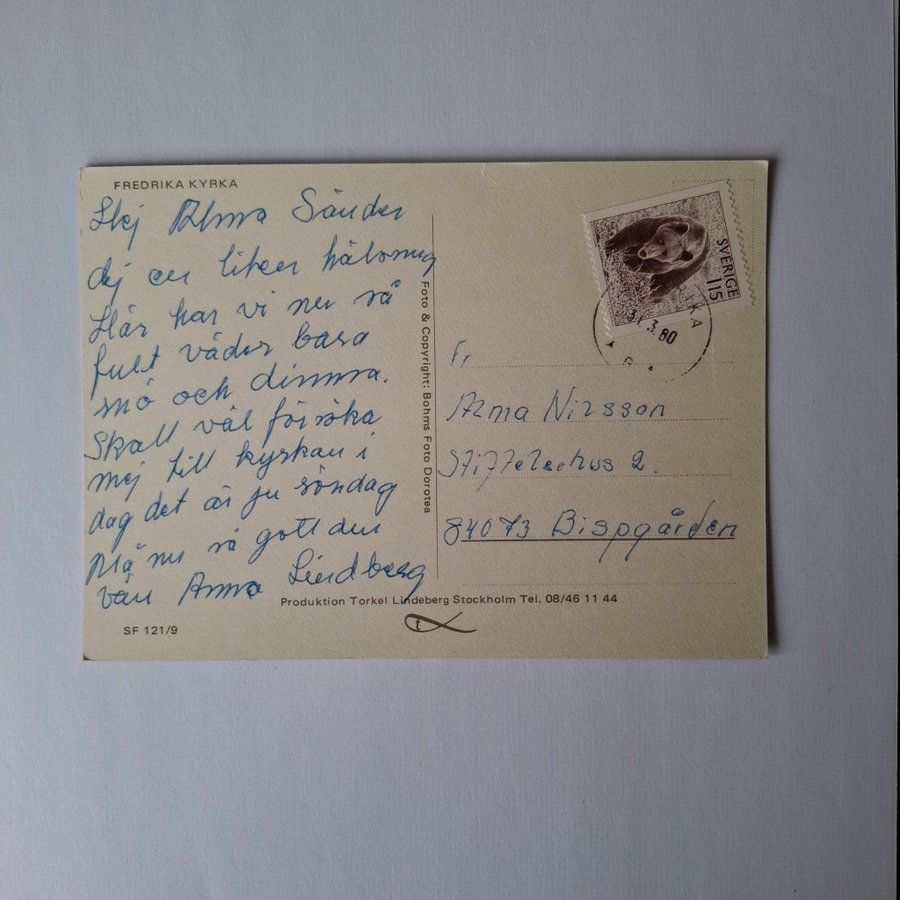 FREDRIKA KYRKA
Hej Alma Sänder
dej en liten hälsning
Här har vi nu så
fult väder bara
snö och dimma.
Skall väl försöka
mej till kyrkan i
dag det är ju söndag
Må nu så gott din
vän Anna Lindberg
SF 121/9
Foto & Copyright: Bohms Foto Dorotea
Produktion Torkel Lindeberg Stockholm Tel. 08/46 11 44
SVERIGE
115
3.80
Fr,
Alma Nilsson
Stiftelsehus 2.
84073 Bispgården